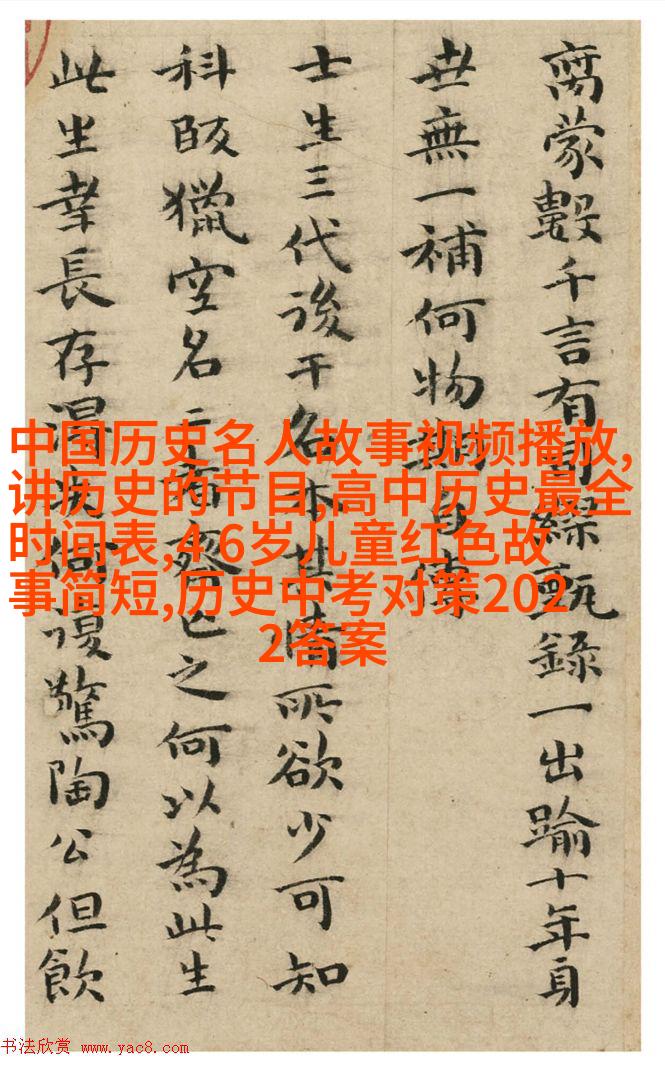 蒙數千言有司繆甄錄一出踰十年身
世無一補何物身傳
士生三代後干名亦其情所欲少可知
科獵空名之何以為此生
此生幸長存渴病復驚陶公但飲
中国历史名人故事视频播放,
讲历史的节目,高中历史最全
时间表,4-6岁儿童红色故
事简短,历史中考对策202
2答案
书法欣赏 www.yac8.com